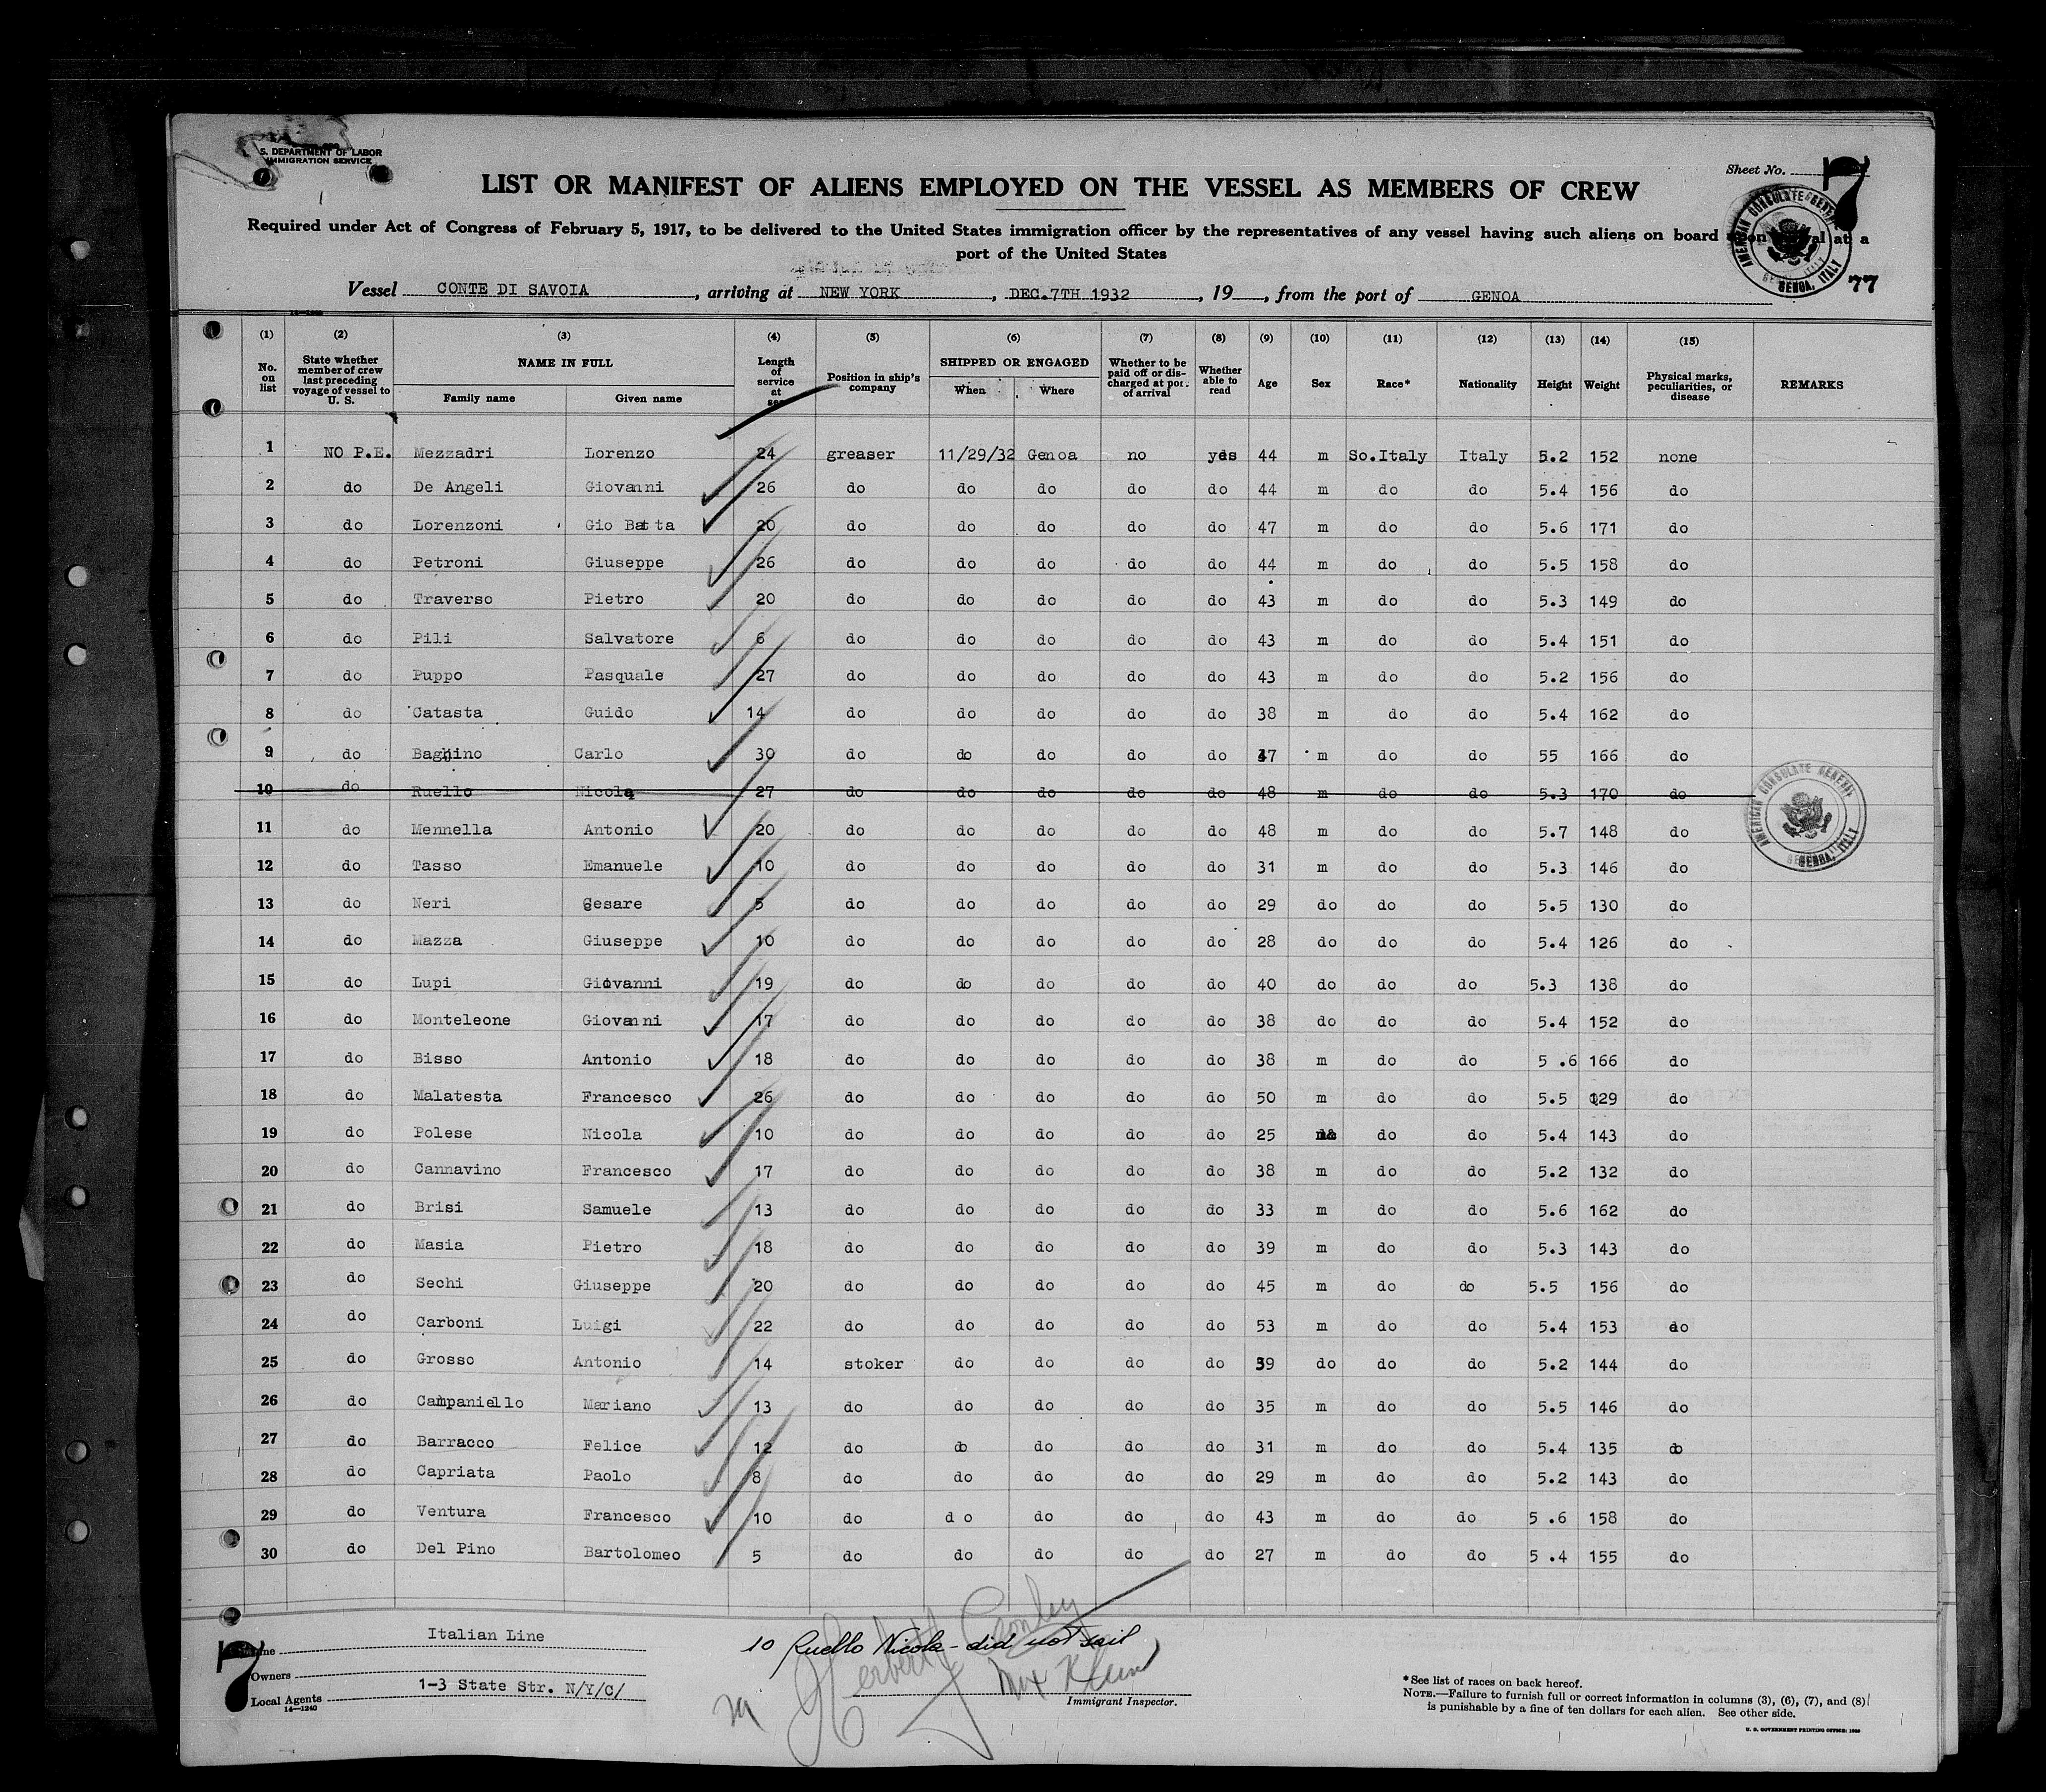 S. DEPARTMENT OF LABOR
IMMIGRATION SERVICE
Sheet No. 7
LIST OR MANIFEST OF ALIENS EMPLOYED ON THE VESSEL AS MEMBERS OF CREW
Required under Act of Congress of February 5, 1917, to be delivered to the United States immigration officer by the representatives of any vessel having such aliens on board at a
port of the United States
AMERICAN CONSULATE GENERAL GENOA, ITALY
77
Vessel CONTE DI SAVOIA, arriving at NEW YORK, DEC.7TH 1932, 19, from the port of GENOA
(1) (2) (3) (4) (5) (6) (7) (8) (9) (10) (11) (12) (13) (14) (15)
No. on list | State whether member of crew last preceding voyage of vessel to U. S. | NAME IN FULL Family name Given name | Length of service at sea | Position in ship's company | SHIPPED OR ENGAGED When Where | Whether to be paid off or discharged at port of arrival | Whether able to read | Age | Sex | Race* | Nationality | Height | Weight | Physical marks, peculiarities, or disease | REMARKS
1 NO P.E. Mezzadri Lorenzo 24 greaser 11/29/32 Genoa no yes 44 m So.Italy Italy 5.2 152 none
2 do De Angeli Giovanni 26 do do do do do 44 m do do 5.4 156 do
3 do Lorenzoni Gio Batta 20 do do do do do 47 m do do 5.6 171 do
4 do Petroni Giuseppe 26 do do do do do 44 m do do 5.5 158 do
5 do Traverso Pietro 20 do do do do do 43 m do do 5.3 149 do
6 do Pili Salvatore 6 do do do do do 43 m do do 5.4 151 do
7 do Puppo Pasquale 27 do do do do do 43 m do do 5.2 156 do
8 do Catasta Guido 14 do do do do do 38 m do do 5.4 162 do
9 do Baglino Carlo 30 do do do do do 47 m do do 55 166 do
10 do Ruello Nicola 27 do do do do do 48 m do do 5.3 170 do
AMERICAN CONSULATE GENERAL GENOA, ITALY
11 do Mennella Antonio 20 do do do do do 48 m do do 5.7 148 do
12 do Tasso Emanuele 10 do do do do do 31 m do do 5.3 146 do
13 do Neri Cesare 5 do do do do do 29 do do do 5.5 130 do
14 do Mazza Giuseppe 10 do do do do do 28 do do do 5.4 126 do
15 do Lupi Giovanni 19 do do do do do 40 do do do 5.3 138 do
16 do Monteleone Giovanni 17 do do do do do 38 do do do 5.4 152 do
17 do Bisso Antonio 18 do do do do do 38 m do do 5 .6 166 do
18 do Malatesta Francesco 26 do do do do do 50 m do do 5.5 129 do
19 do Polese Nicola 10 do do do do do 25 do do 5.4 143 do
20 do Cannavino Francesco 17 do do do do do 38 m do do 5.2 132 do
21 do Brisi Samuele 13 do do do do do 33 m do do 5.6 162 do
22 do Masia Pietro 18 do do do do do 39 m do do 5.3 143 do
23 do Sechi Giuseppe 20 do do do do do 45 m do do 5.5 156 do
24 do Carboni Luigi 22 do do do do do 53 m do do 5.4 153 do
25 do Grosso Antonio 14 stoker do do do do 39 do do do 5.2 144 do
26 do Campaniello Mariano 13 do do do do do 35 m do do 5.5 146 do
27 do Barracco Felice 12 do do do do do 31 m do do 5.4 135 do
28 do Capriata Paolo 8 do do do do do 29 m do do 5.2 143 do
29 do Ventura Francesco 10 do d o do do do 43 m do do 5 .6 158 do
30 do Del Pino Bartolomeo 5 do do do do do 27 m do do 5 .4 155 do
7
Line Italian Line
Owners
Local Agents 1-3 State Str. N/Y/C/
14—1240
10 Ruello Nicola - did not sail
Immigrant Inspector.
*See list of races on back hereof.
NOTE.—Failure to furnish full or correct information in columns (3), (6), (7), and (8)
is punishable by a fine of ten dollars for each alien. See other side.
U. S. GOVERNMENT PRINTING OFFICE: